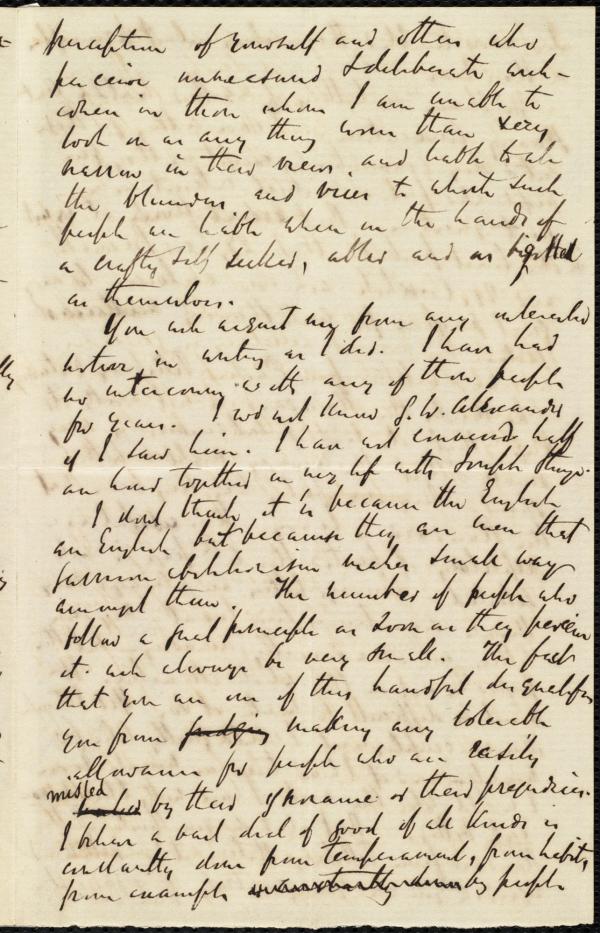 perception of yourself and others who
perceive unreasoned & deliberate wick-
edness in those whom I am unable to
look on as any thing worse than very
narrow in their views, and liable to all
the blunders and vices to which such
people are liable when in the hands of
a crafty self seeker, abler and as bigotted
as themselves.
You will acquit my from any interested
motive in writing as I did. I have had
no intercourse with any of those people
for years. I wd not know G. W. Alexander
if I saw him. I have not conversed half
an hour together in my life with Joseph Sturge.
I dont think it is because the English
are English but because they are men that
Garrison abolitionism makes small way
amongst them. The number of people who
follow a great principle as soon as they perceive
it will always be very small. The fact
that you are one of this handful disqualifies
you from judging making any tolerable
allowance for people who are easily
misled
by their ignorance or their prejudices.
I believe a vast deal of good of all kinds is
constantly done from temperament, from habit,
from example by people